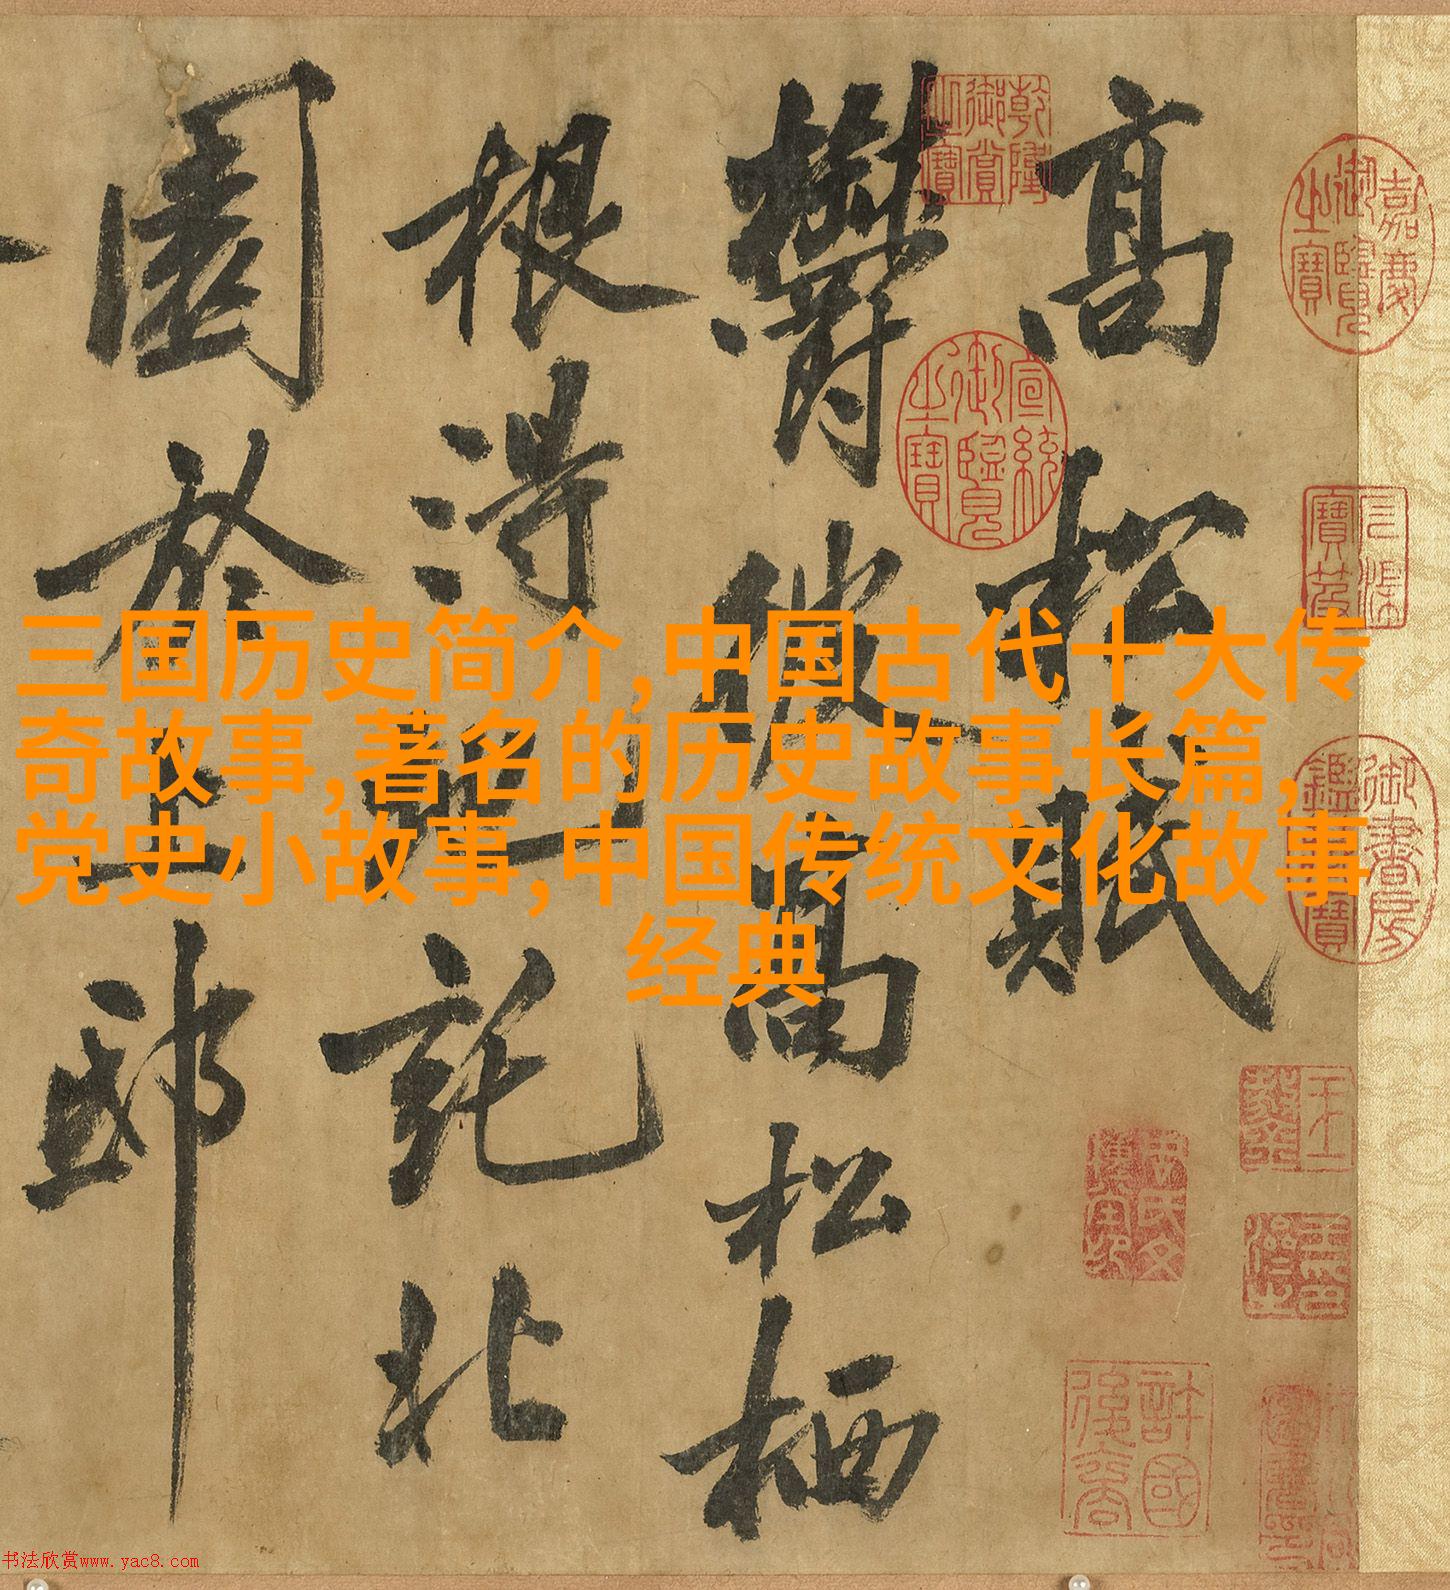 三国历史简介,中国古代十大传
奇故事,著名的历史故事长篇,
党史小故事,中国传统文化故事
经典
高松賦
鬱彼高松栖
根得地託北
園於上邸
嘉慶御覽之寶
乾隆御賞之寶
宣統御覽之寶
石渠寶笈
御書房鑑藏寶
許國後裔
书法欣赏www.yac8.com